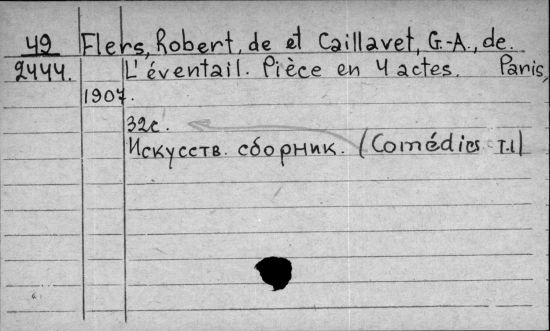 49 Flers, Robert, de et Caillavet, G.-A., de.
2444. L'éventail. Pièce en 4 actes. Paris,
1907.
32с.
Искусств. сборник. (Comédies T.1)